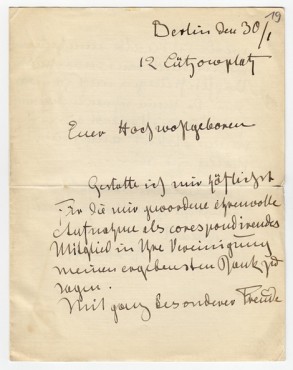 19
Berlin den 30/1
12 Lützowplatz
Euer Hochwohlgeboren
Gestatte ich mir höflichst
Für die mir gewordene ehrenvolle
Aufnahme als corespondirendes
Mitglied in Ihre Vereinigung
meinen ergebensten Dank zu
sagen.
Mit ganz besonderer Freude